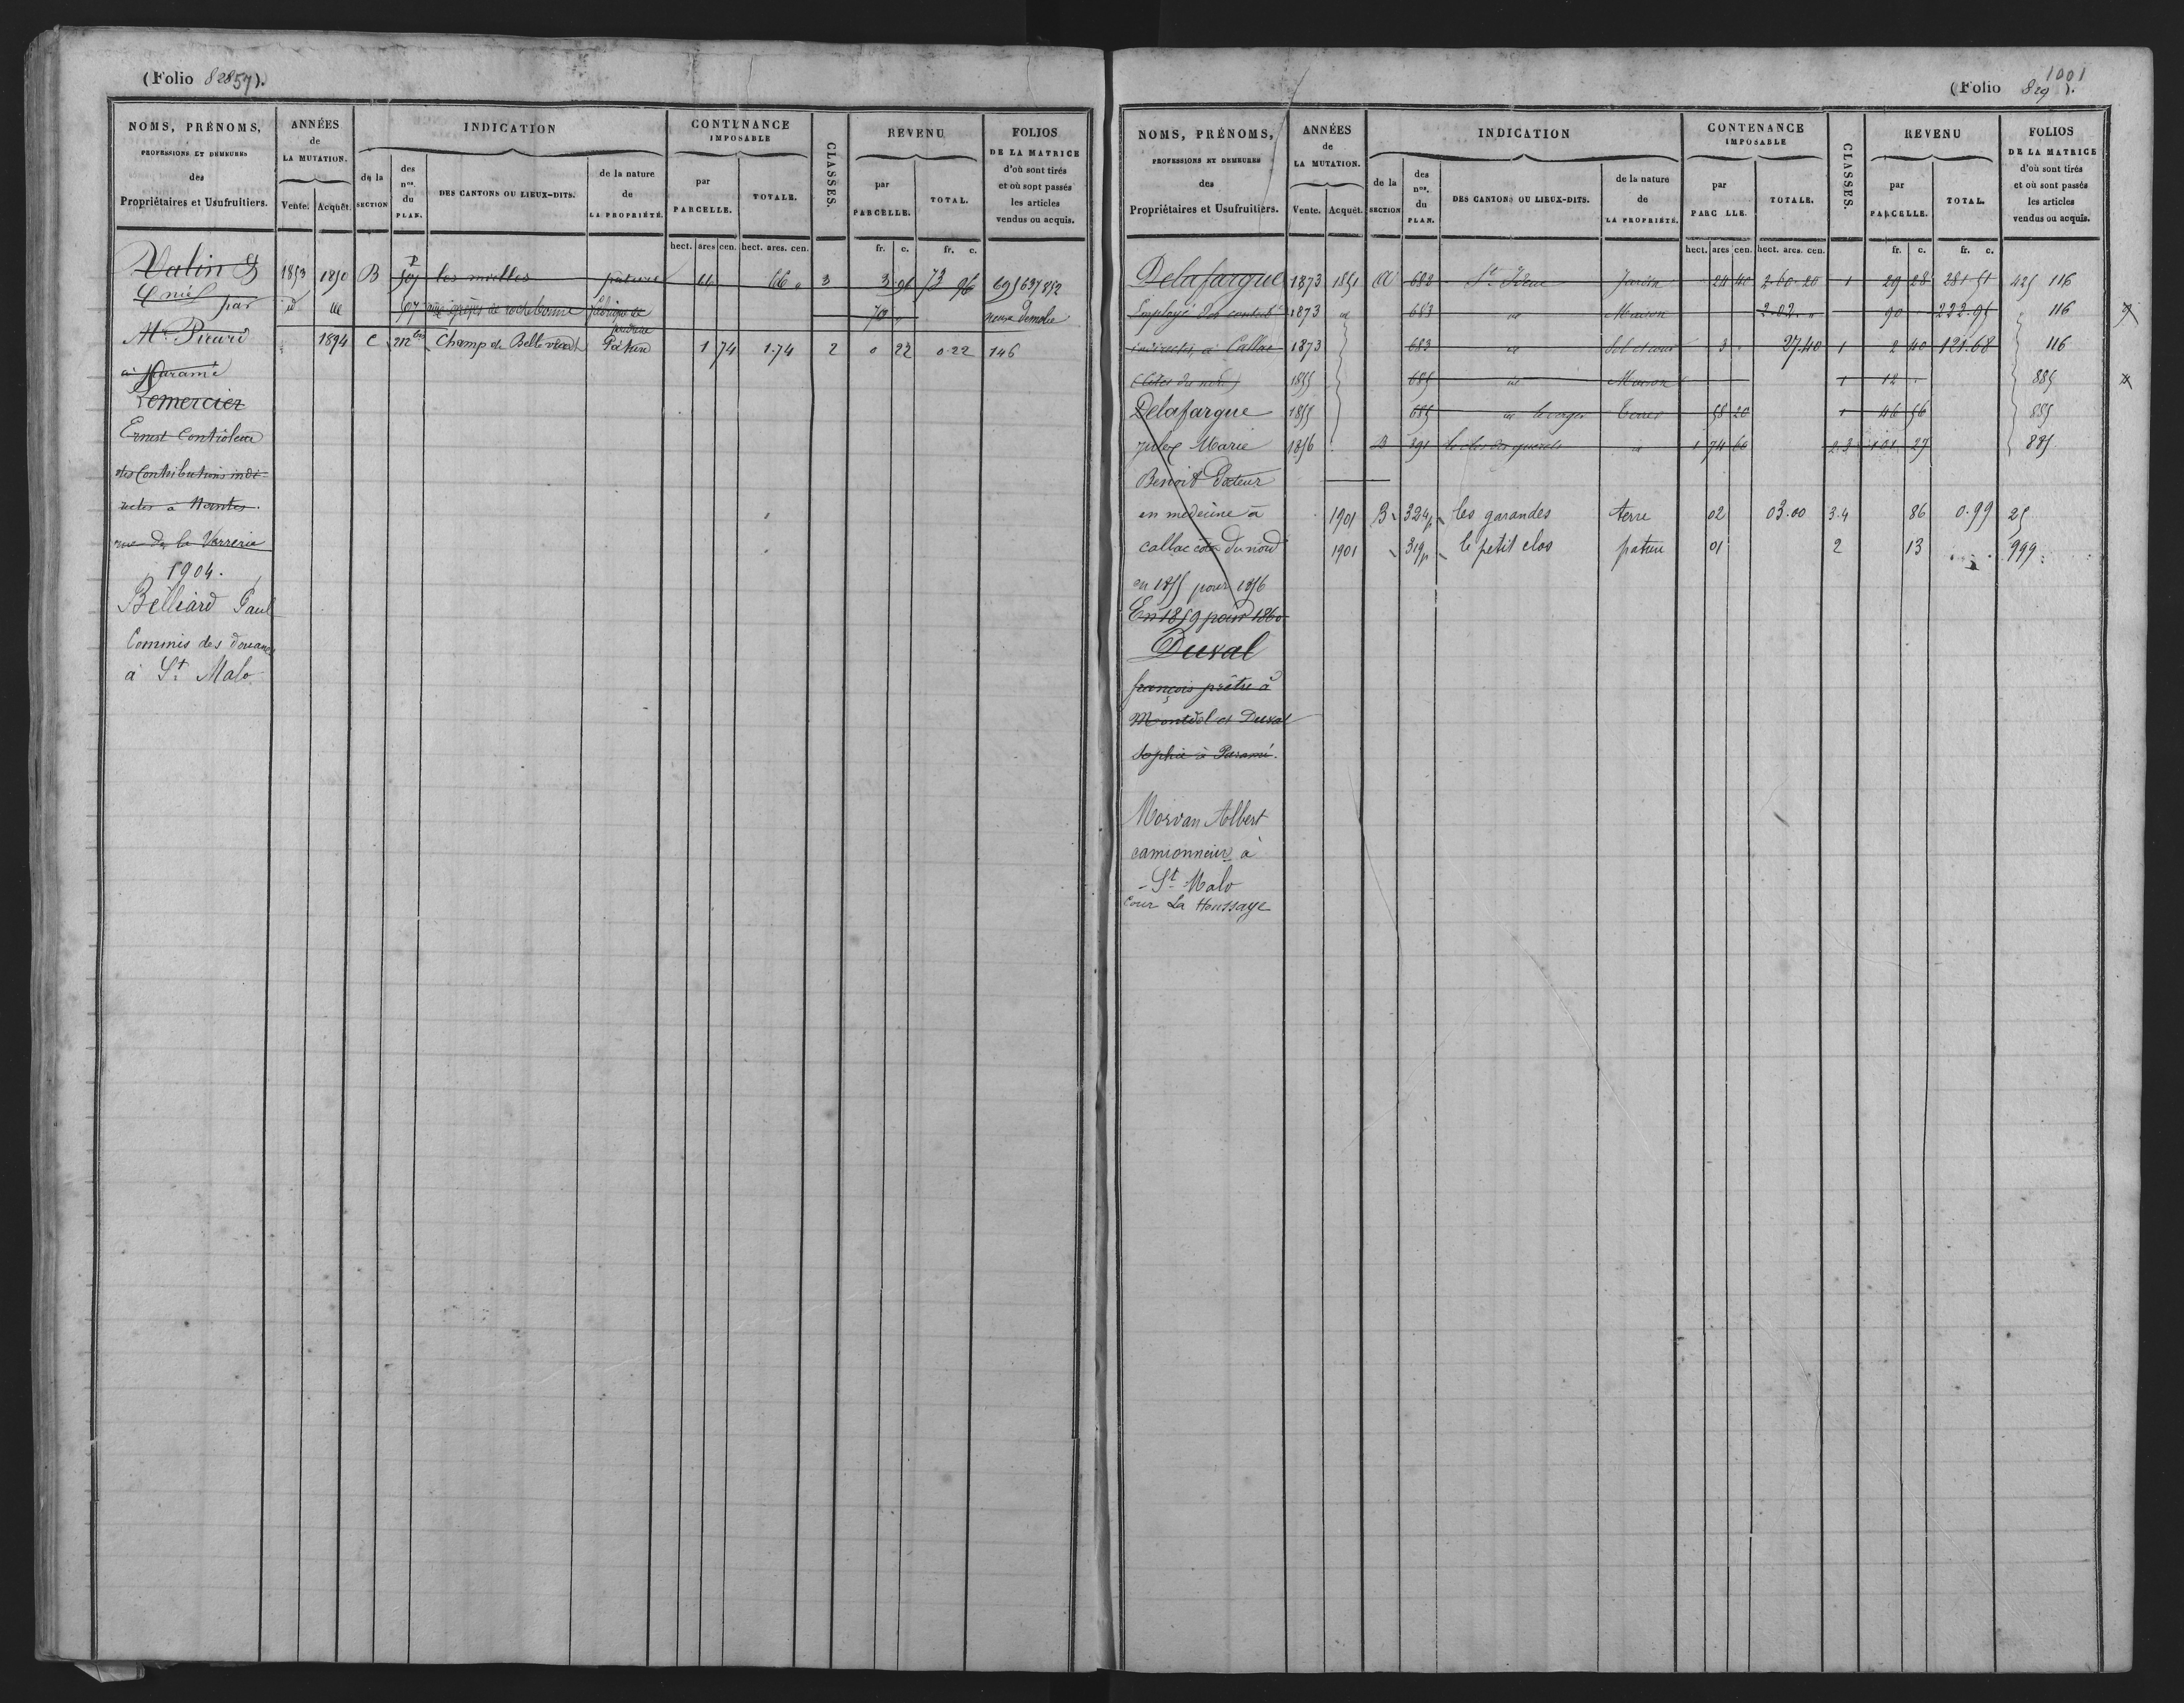 (Folio 82857).
NOMS, PRÉNOMS,
PROFESSIONS ET DEMEURES
des
Propriétaires et Usufruitiers.
ANNÉES
de
LA MUTATION.
Vente. Acquêt.
INDICATION
de la SECTION
des nos. du PLAN.
DES CANTONS OU LIEUX-DITS.
de la nature de LA PROPRIÉTÉ.
CONTENANCE IMPOSABLE
par PARCELLE.
TOTALE.
CLASSES.
REVENU
par PARCELLE.
TOTAL.
FOLIOS
DE LA MATRICE
d'où sont tirés
et où sont passés
les articles
vendus ou acquis.
hect. ares cen. hect. ares. cen. fr. c. fr. c.
Valin &
1853 1850 B les mielles pature 66 66 " 3 3 96 73 96 695 637 852
Cnie par
id de rochebonne fabrique de poudrette 70 " démolie
Mr Picard
1894 C 212 bis Champ de Bellevent Pâture 1 74 1.74 2 0 22 0.22 146
à Paramé
Lemercier
Ernest Contrôleur
des Contributions indi-
rectes à Nantes.
rue de la Verrerie
1904.
Belliard Paul
Commis des douanes
à St Malo
1001
(Folio 829).
NOMS, PRÉNOMS,
PROFESSIONS ET DEMEURES
des
Propriétaires et Usufruitiers.
ANNÉES
de
LA MUTATION.
Vente. Acquêt.
INDICATION
de la SECTION
des nos. du PLAN.
DES CANTONS OU LIEUX-DITS.
de la nature de LA PROPRIÉTÉ.
CONTENANCE IMPOSABLE
par PARC LLE.
TOTALE.
CLASSES.
REVENU
par PARCELLE.
TOTAL.
FOLIOS
DE LA MATRICE
d'où sont tirés
et où sont passés
les articles
vendus ou acquis.
hect. ares cen. hect. ares. cen. fr. c. fr. c.
Delafargue 1873 1851 682 St Ideuc Jardin 24 40 2.60.20 1 29 28 281.51 425 116
Employé des contribns 1873 id 683 id Maison 2.02. " 90 222.95 116
indirectes, à Callac 1873 683 id Sol et cour 3 27.40 1 2 40 121.68 116
(Côtes du nord) 1855 685 id Maison 1 12 885
Delafargue 1855 685 id Terre 58 20 1 46 56 885
Jules Marie 1856 B 391 le clos des id 1 74 60 2.3 101 27 885
Benoit Docteur
en médecine à 1901 B 324p les garandes terre 02 03.00 3.4 86 0.99 25
callac côtes du nord 1901 319p le petit clos pature 01 2 13 999
en 1855 pour 1856
En 1859 pour 1860
Duval
françois prêtre à
Montdol et Duval
Sophie à Paramé.
Morvan Albert
camionneur à
St Malo
cour La Houssaye